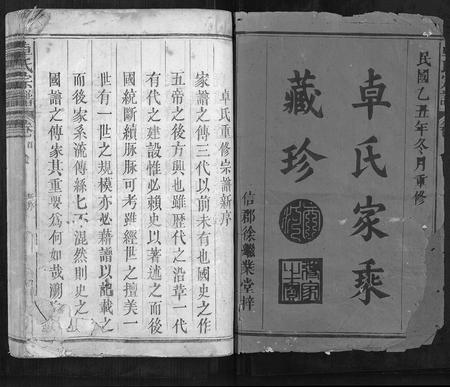 民國乙丑年冬月重修
卓氏家乘
藏珍
信郡徐繼業堂梓
卓氏重修宗譜新序
家譜之傳三代以前未有也國史之作
五帝之後方興也雖歷代之沿革一代
有代之建設惟必賴史以著述之而後
國統斷續脉脉可考雖經世之擅美一
世有一世之規模亦必藉譜以記載之
而後家系流傳絲七不混然則史之
國譜之傳家其重要為何如哉溯
卓氏宗譜